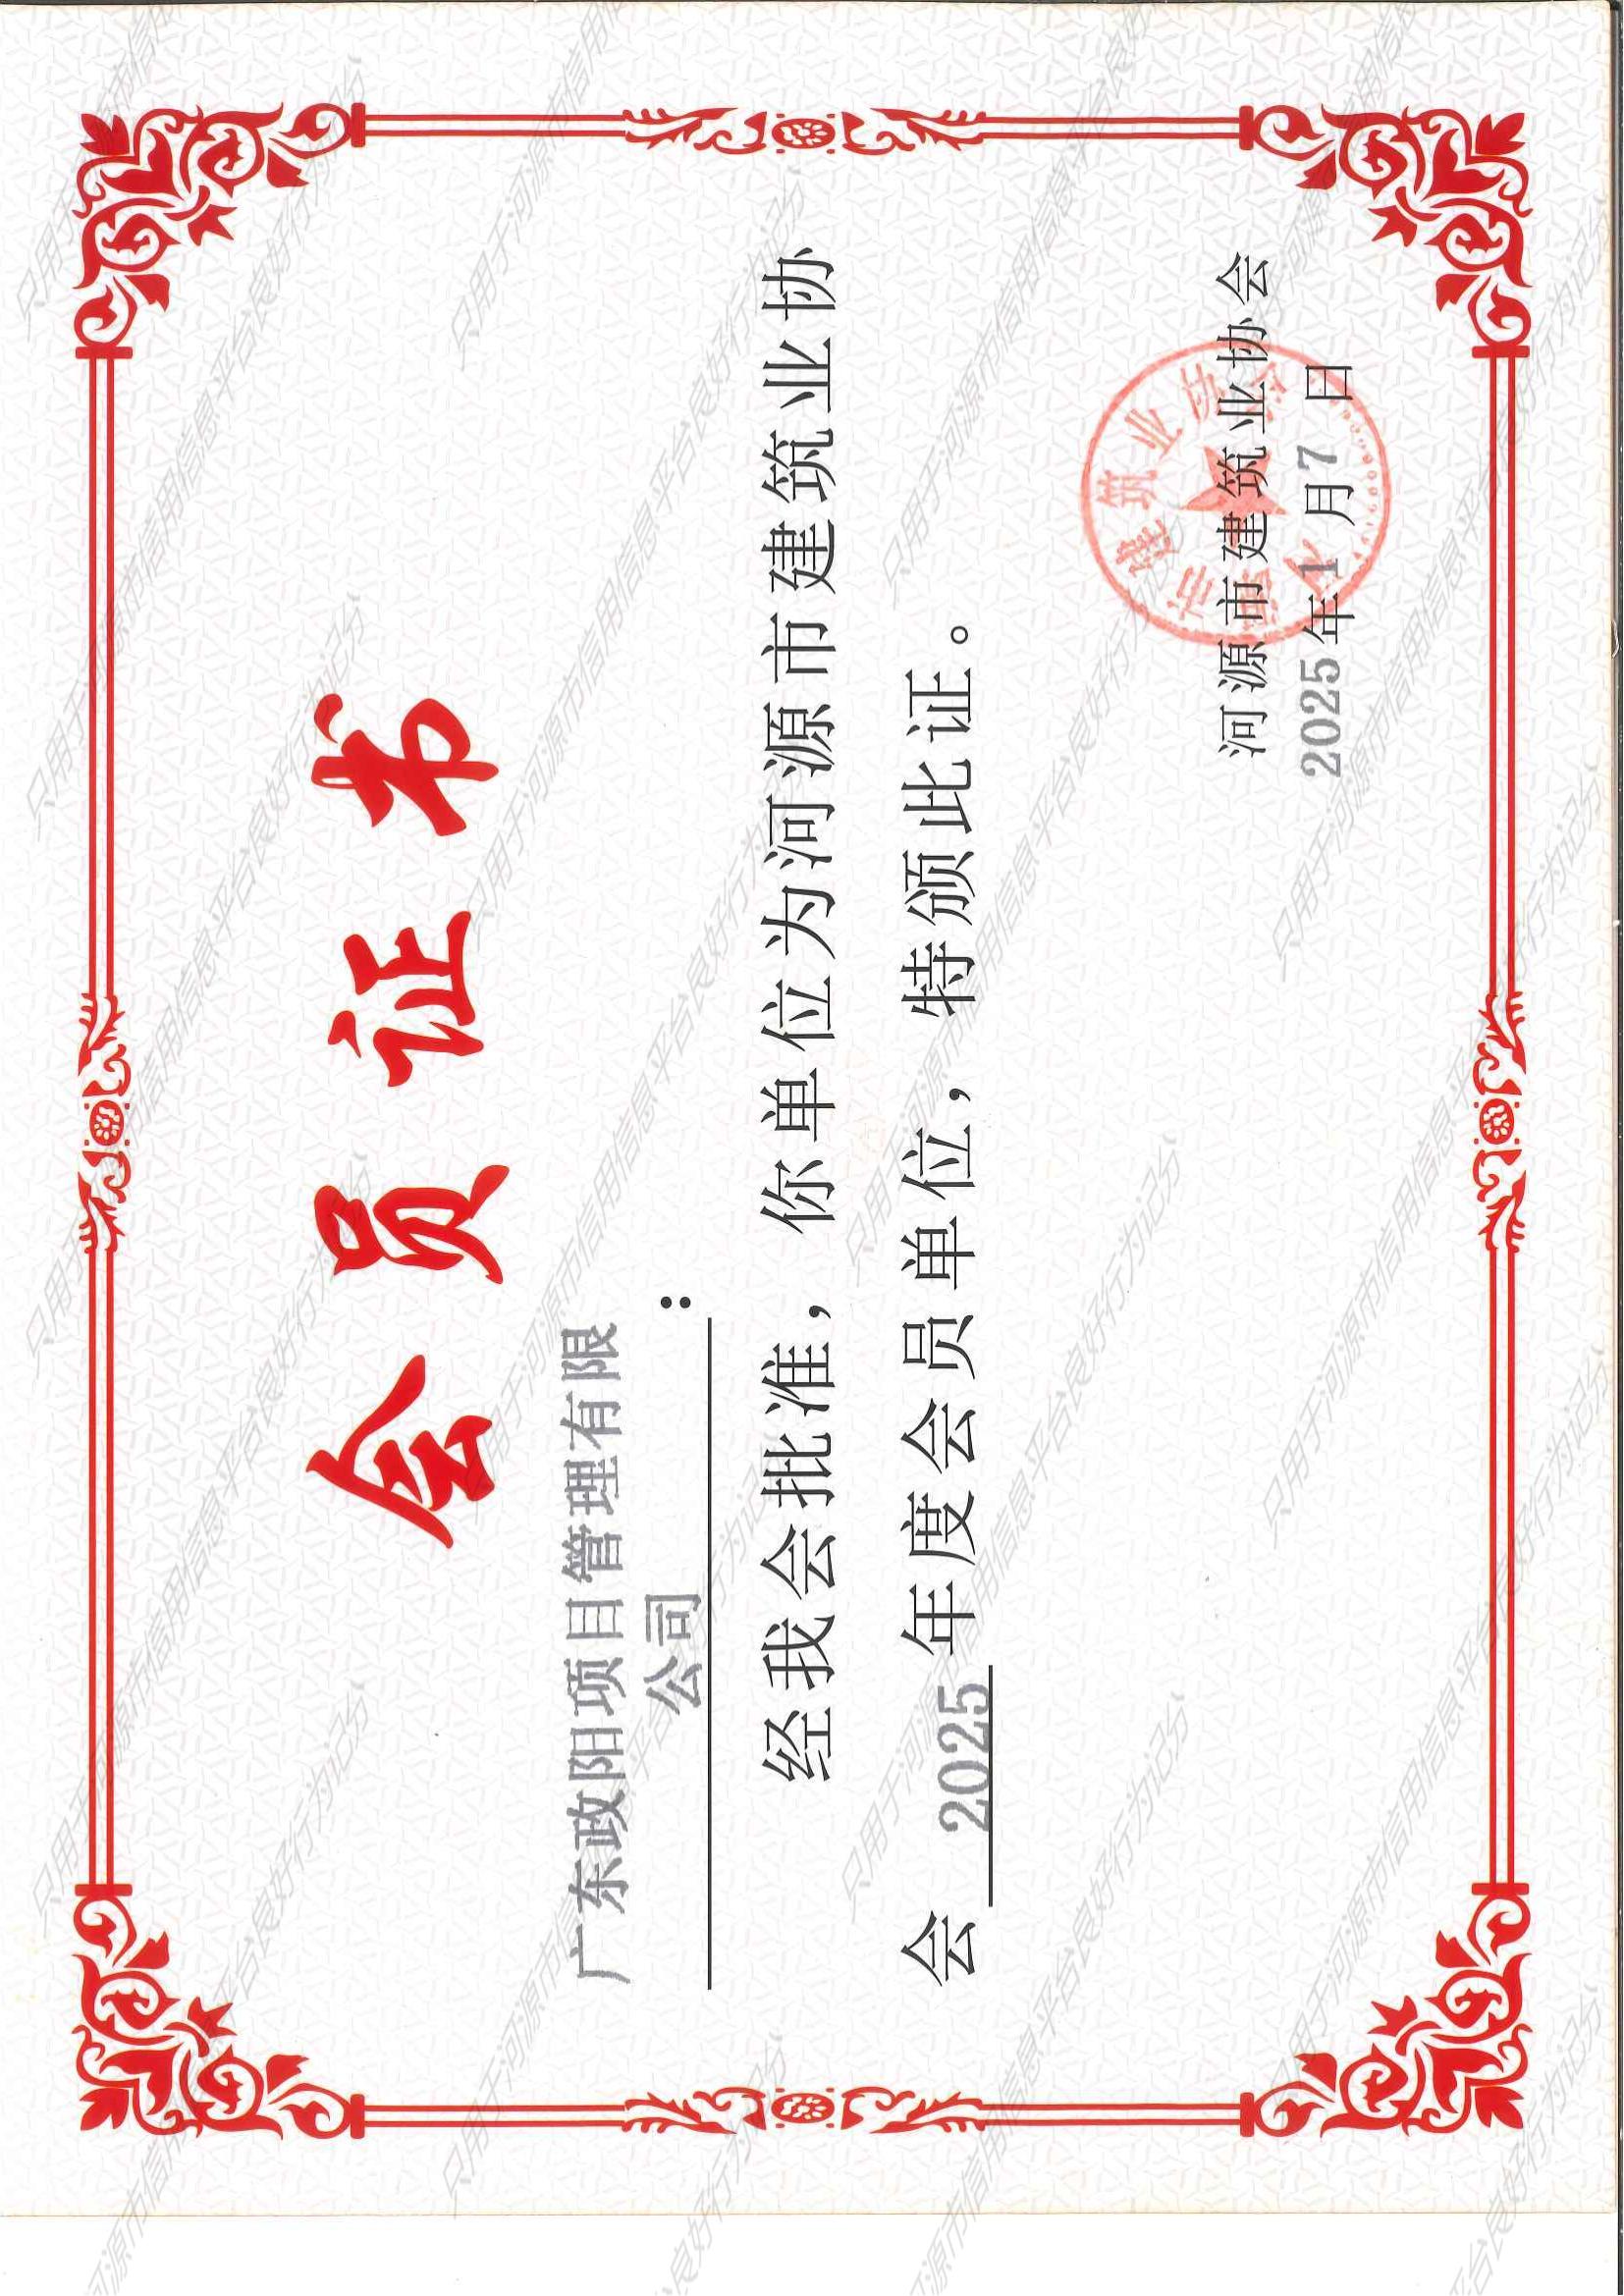 会员证书
广东政阳项目管理有限
公司：
经我会批准，你单位为河源市建筑业协
会 2025 年度会员单位，特颁此证。
河源市建筑业协会
2025年1月7日
河源市建筑业协会
只用于河源市信用信息平台良好行为记分